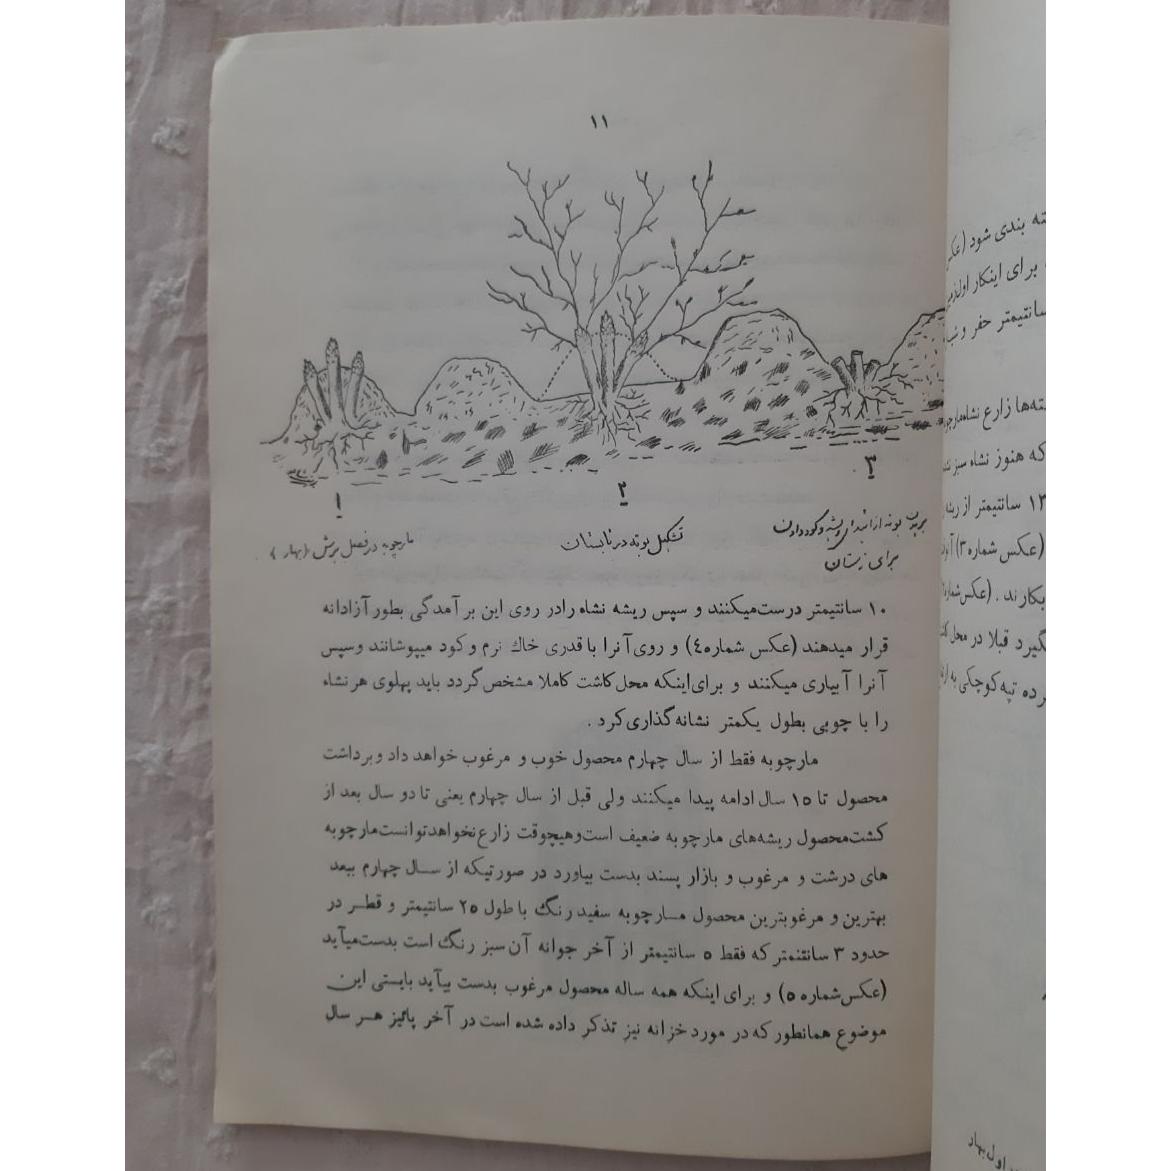 ۱۱
۱
۲
۳
مارچوبه در فصل برش (بهار)
تشکیل بوته در تابستان
بریدن بوته از ابتدای ریشه و کود دادن
برای زمستان
۱۰ سانتیمتر درست میکنند و سپس ریشه نشاه را در روی این بر آمدگی بطور آزادانه
قرار میدهند (عکس شماره ٤) و روی آنرا با قدری خاك نرم و کود میپوشانند و سپس
آنرا آبیاری میکنند و برای اینکه محل کاشت کاملا مشخص گردد باید پهلوی هر نشاه
را با چوبی بطول یکمتر نشانه گذاری کرد .
مارچوبه فقط از سال چهارم محصول خوب و مرغوب خواهد داد و برداشت
محصول تا ۱۵ سال ادامه پیدا میکنند ولی قبل از سال چهارم یعنی تا دو سال بعد از
کشت محصول ریشه‌های مارچوبه ضعیف است و هیچوقت زارع نخواهد توانست مارچوبه
های درشت و مرغوب و بازار پسند بدست بیاورد در صورتیکه از سال چهارم ببعد
بهترین و مرغوبترین محصول مارچوبه سفید رنگ با طول ۲۵ سانتیمتر و قطر در
حدود ۳ سانتیمتر که فقط ۵ سانتیمتر از آخر جوانه آن سبز رنگ است بدست میآید
(عکس شماره ۵) و برای اینکه همه ساله محصول مرغوب بدست بیآید بایستی این
موضوع همانطور که در مورد خزانه نیز تذکر داده شده است در آخر پائیز هر سال
بندی شود (عکس
برای اینکار اول
سانتیمتر حفر و
زارع نشاه
که هنوز نشاه سبز
۱۳ سانتیمتر از
(عکس شماره ۳)
بکارند . (عکس شماره
قبلا در محل
تپه کوچکی به
اول بهار